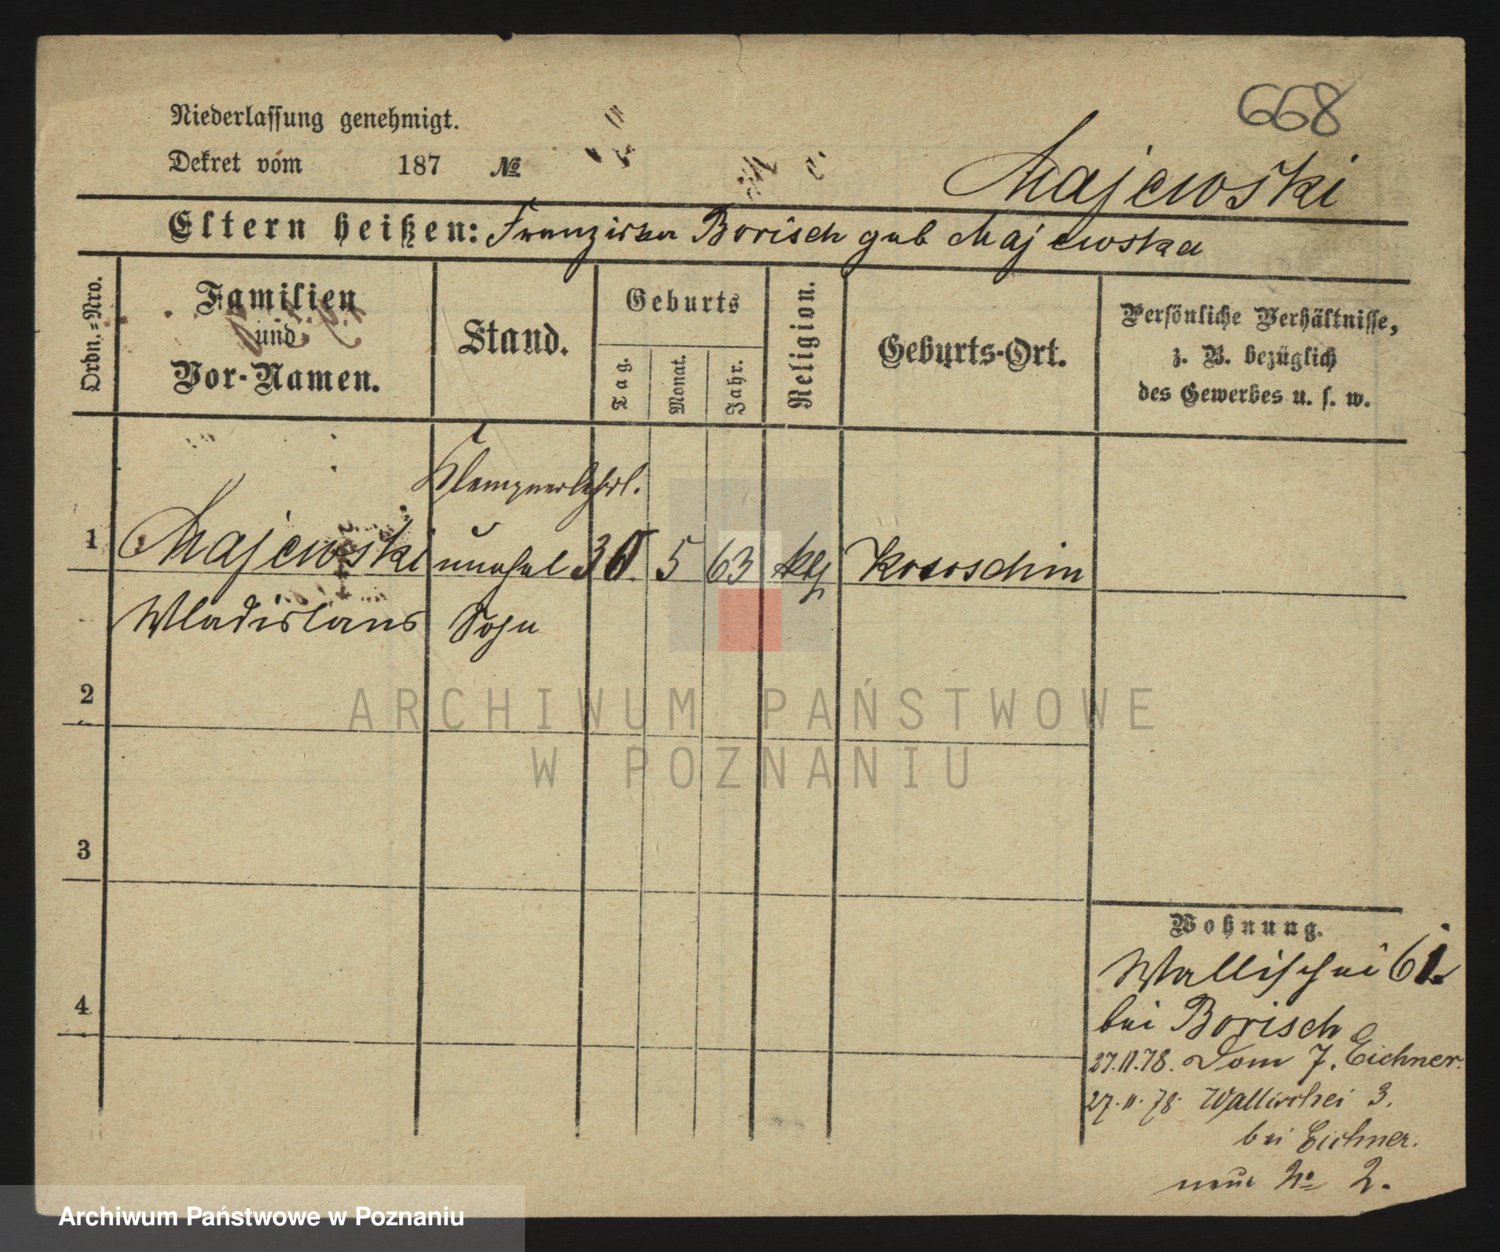 668
Niederlassung genehmigt.
Dekret vom 187 №
Majewski
Eltern heißen: Franziska Borisch geb Majewska
Ordn.=Nro.
Familien
und
Vor-Namen.
Stand.
Geburts
Tag.
Monat.
Jahr.
Religion.
Geburts-Ort.
Persönliche Verhältnisse,
z. B. bezüglich
des Gewerbes u. s. w.
Klempnerlehrl.
1 Majewski unehel 30. 5 63 kth Kososchin
Wladislaus Sohn
2
3
4
ARCHIWUM PAŃSTWOWE
W POZNANIU
Wohnung.
Wallischei 61.
bei Borisch
27.11.78. Dom 7. Eichner.
27.11.78 Wallischei 3.
bei Eichner.
neue No 2.
Archiwum Państwowe w Poznaniu